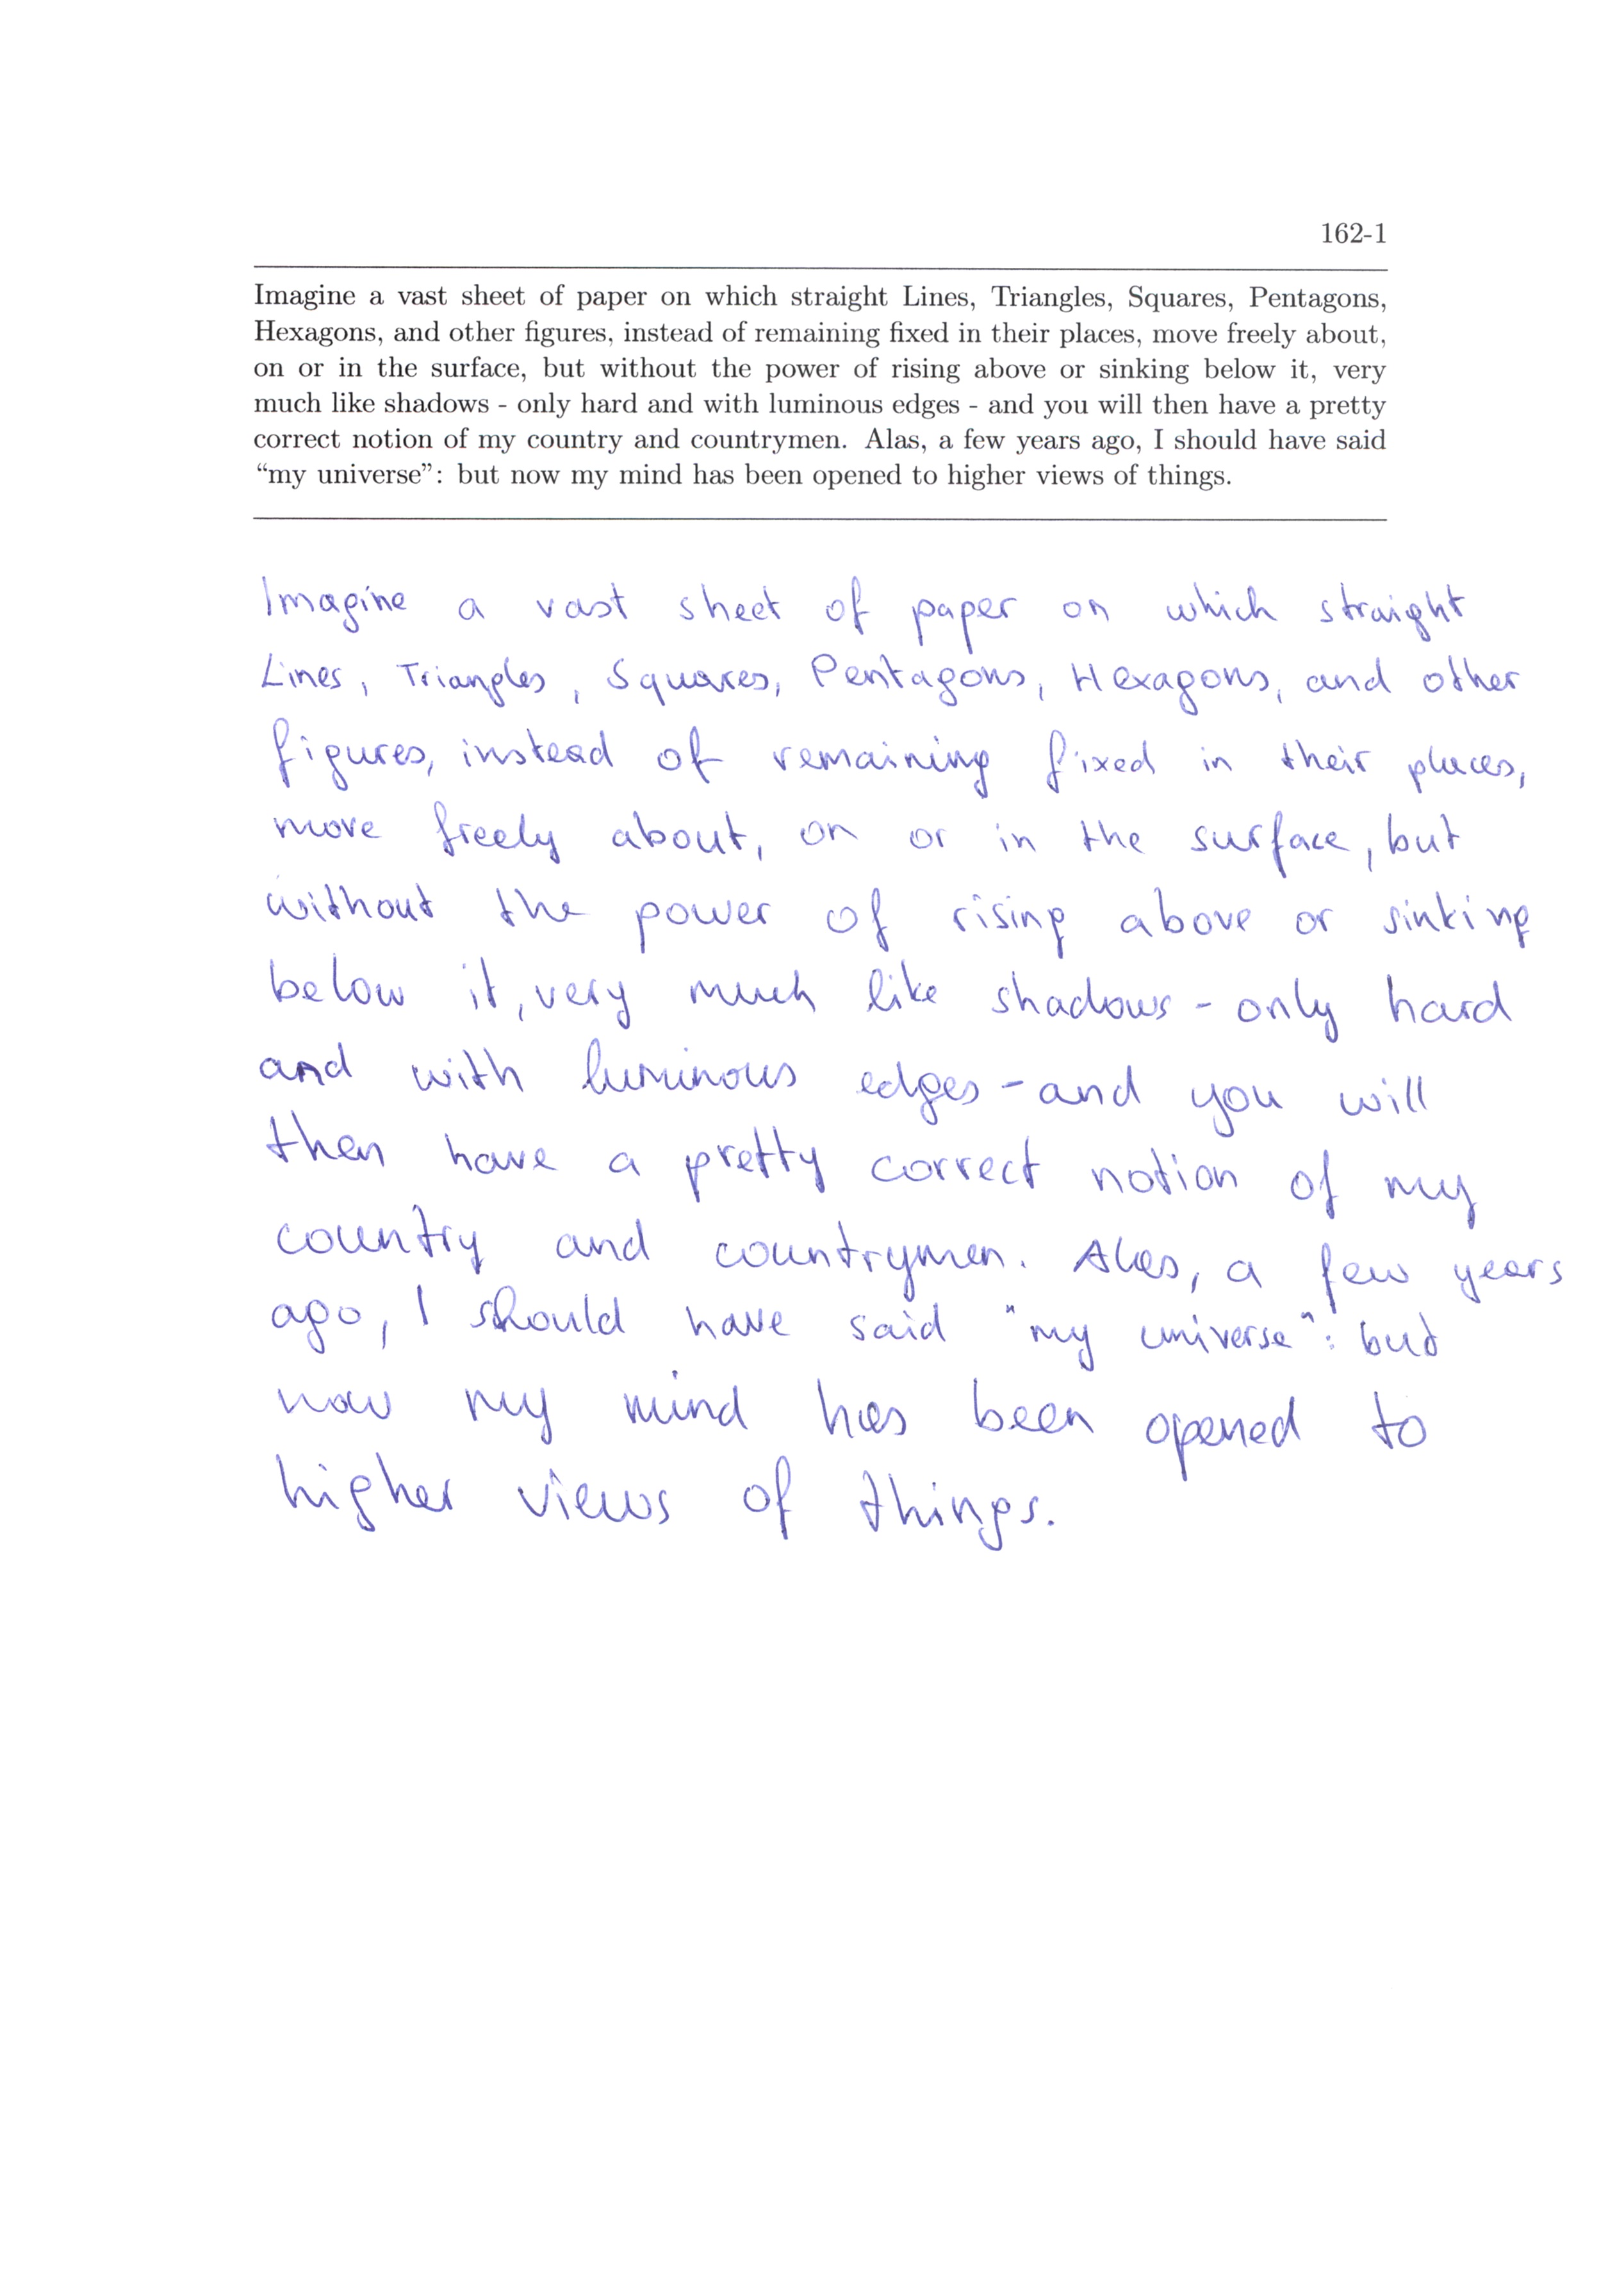 162-1
Imagine a vast sheet of paper on which straight Lines, Triangles, Squares, Pentagons,
Hexagons, and other figures, instead of remaining fixed in their places, move freely about,
on or in the surface, but without the power of rising above or sinking below it, very
much like shadows - only hard and with luminous edges - and you will then have a pretty
correct notion of my country and countrymen. Alas, a few years ago, I should have said
“my universe”: but now my mind has been opened to higher views of things.
Imagine a vast sheet of paper on which straight
Lines, Triangles, Squares, Pentagons, Hexagons, and other
figures, instead of remaining fixed in their places,
move freely about, on or in the surface, but
without the power of rising above or sinking
below it, very much like shadows - only hard
and with luminous edges - and you will
then have a pretty correct notion of my
country and countrymen. Alas, a few years
ago, I should have said "my universe": but
now my mind has been opened to
higher views of things.